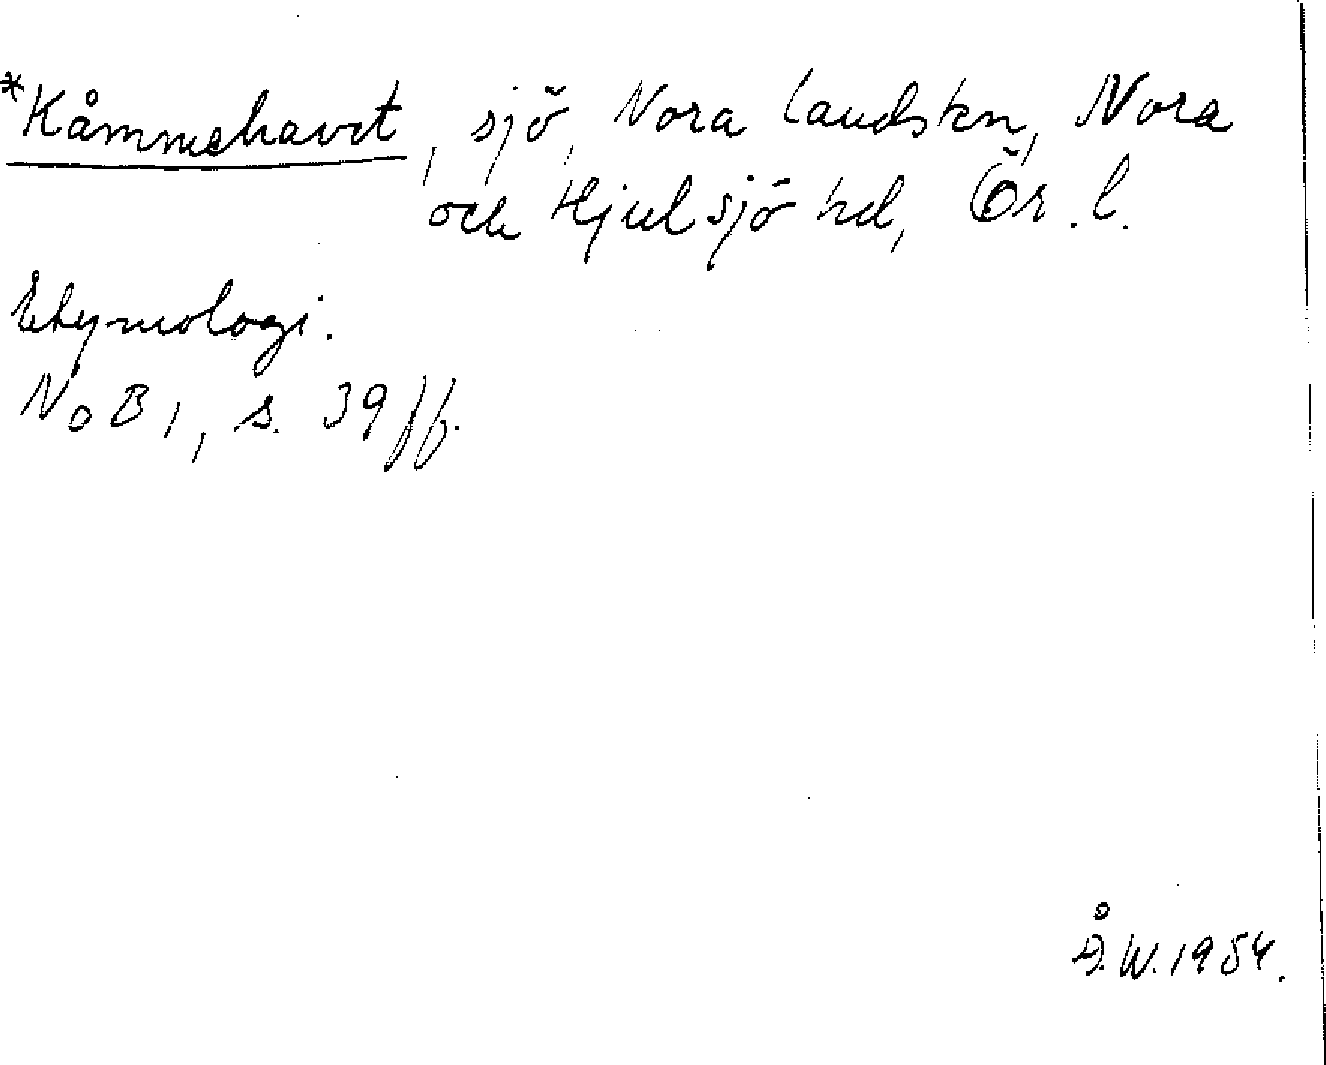 *Kåmmehavet, sjö, Nora landskn, Nora
och Hjulsjö hd, Ör. l.
Etymologi.
NoB 1, s. 39 ff.
Å.W. 1954.